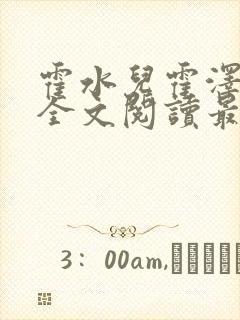 霍水兒霍澤
全文閱讀最
3：00am,